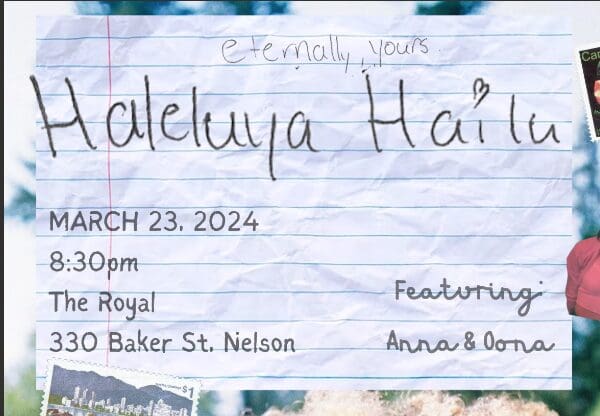 eternally, yours
Haleluya Hailu
MARCH 23, 2024
8:30pm
The Royal
330 Baker St, Nelson
Featuring
Anna & Oona
$1